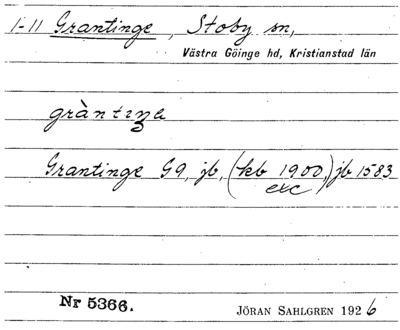 1-11 Grantinge, Stoby sn,
Västra Göinge hd, Kristianstad län
gràntıŋa
Grantinge G9, jb, (kb 1900,) jb 1583
exc
Nr 5366.
JÖRAN SAHLGREN 1926